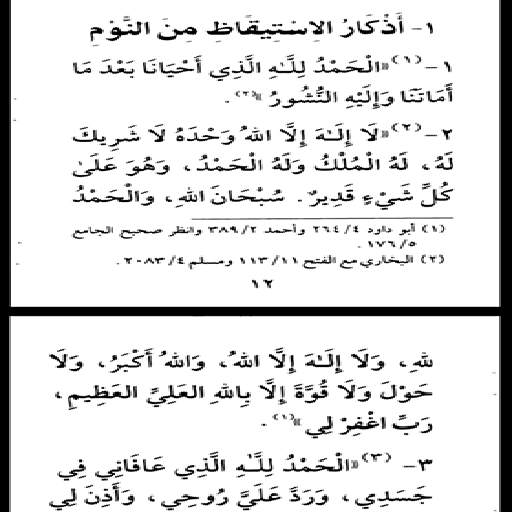 ١- أَذْكَارُ الِاسْتِيقَاظِ مِنَ النَّوْمِ
١-(١)«الْحَمْدُ لِلَّـهِ الَّذِي أَحْيَانَا بَعْدَ مَا
أَمَاتَنَا وَإِلَيْهِ النُّشُورُ»(٢).
٢-(٢)«لَا إِلَـٰهَ إِلَّا اللهُ وَحْدَهُ لَا شَرِيكَ
لَهُ، لَهُ الْمُلْكُ وَلَهُ الْحَمْدُ، وَهُوَ عَلَىٰ
كُلِّ شَيْءٍ قَدِيرٌ. سُبْحَانَ اللهِ، وَالْحَمْدُ
(١) أبو داود ٤/ ٢٦٤ وأحمد ٢/ ٣٨٩ وانظر صحيح الجامع
٥/ ١٧٦.
(٢) البخاري مع الفتح ١١/ ١١٣ ومسلم ٤/ ٢٠٨٣.
١٢
للهِ، وَلَا إِلَـٰهَ إِلَّا اللهُ، وَاللهُ أَكْبَرُ، وَلَا
حَوْلَ وَلَا قُوَّةَ إِلَّا بِاللهِ العَلِيِّ العَظِيمِ،
رَبِّ اغْفِرْ لِي»(١).
٣- (٣)«الْحَمْدُ لِلَّـهِ الَّذِي عَافَانِي فِي
جَسَدِي، وَرَدَّ عَلَيَّ رُوحِي، وَأَذِنَ لِي